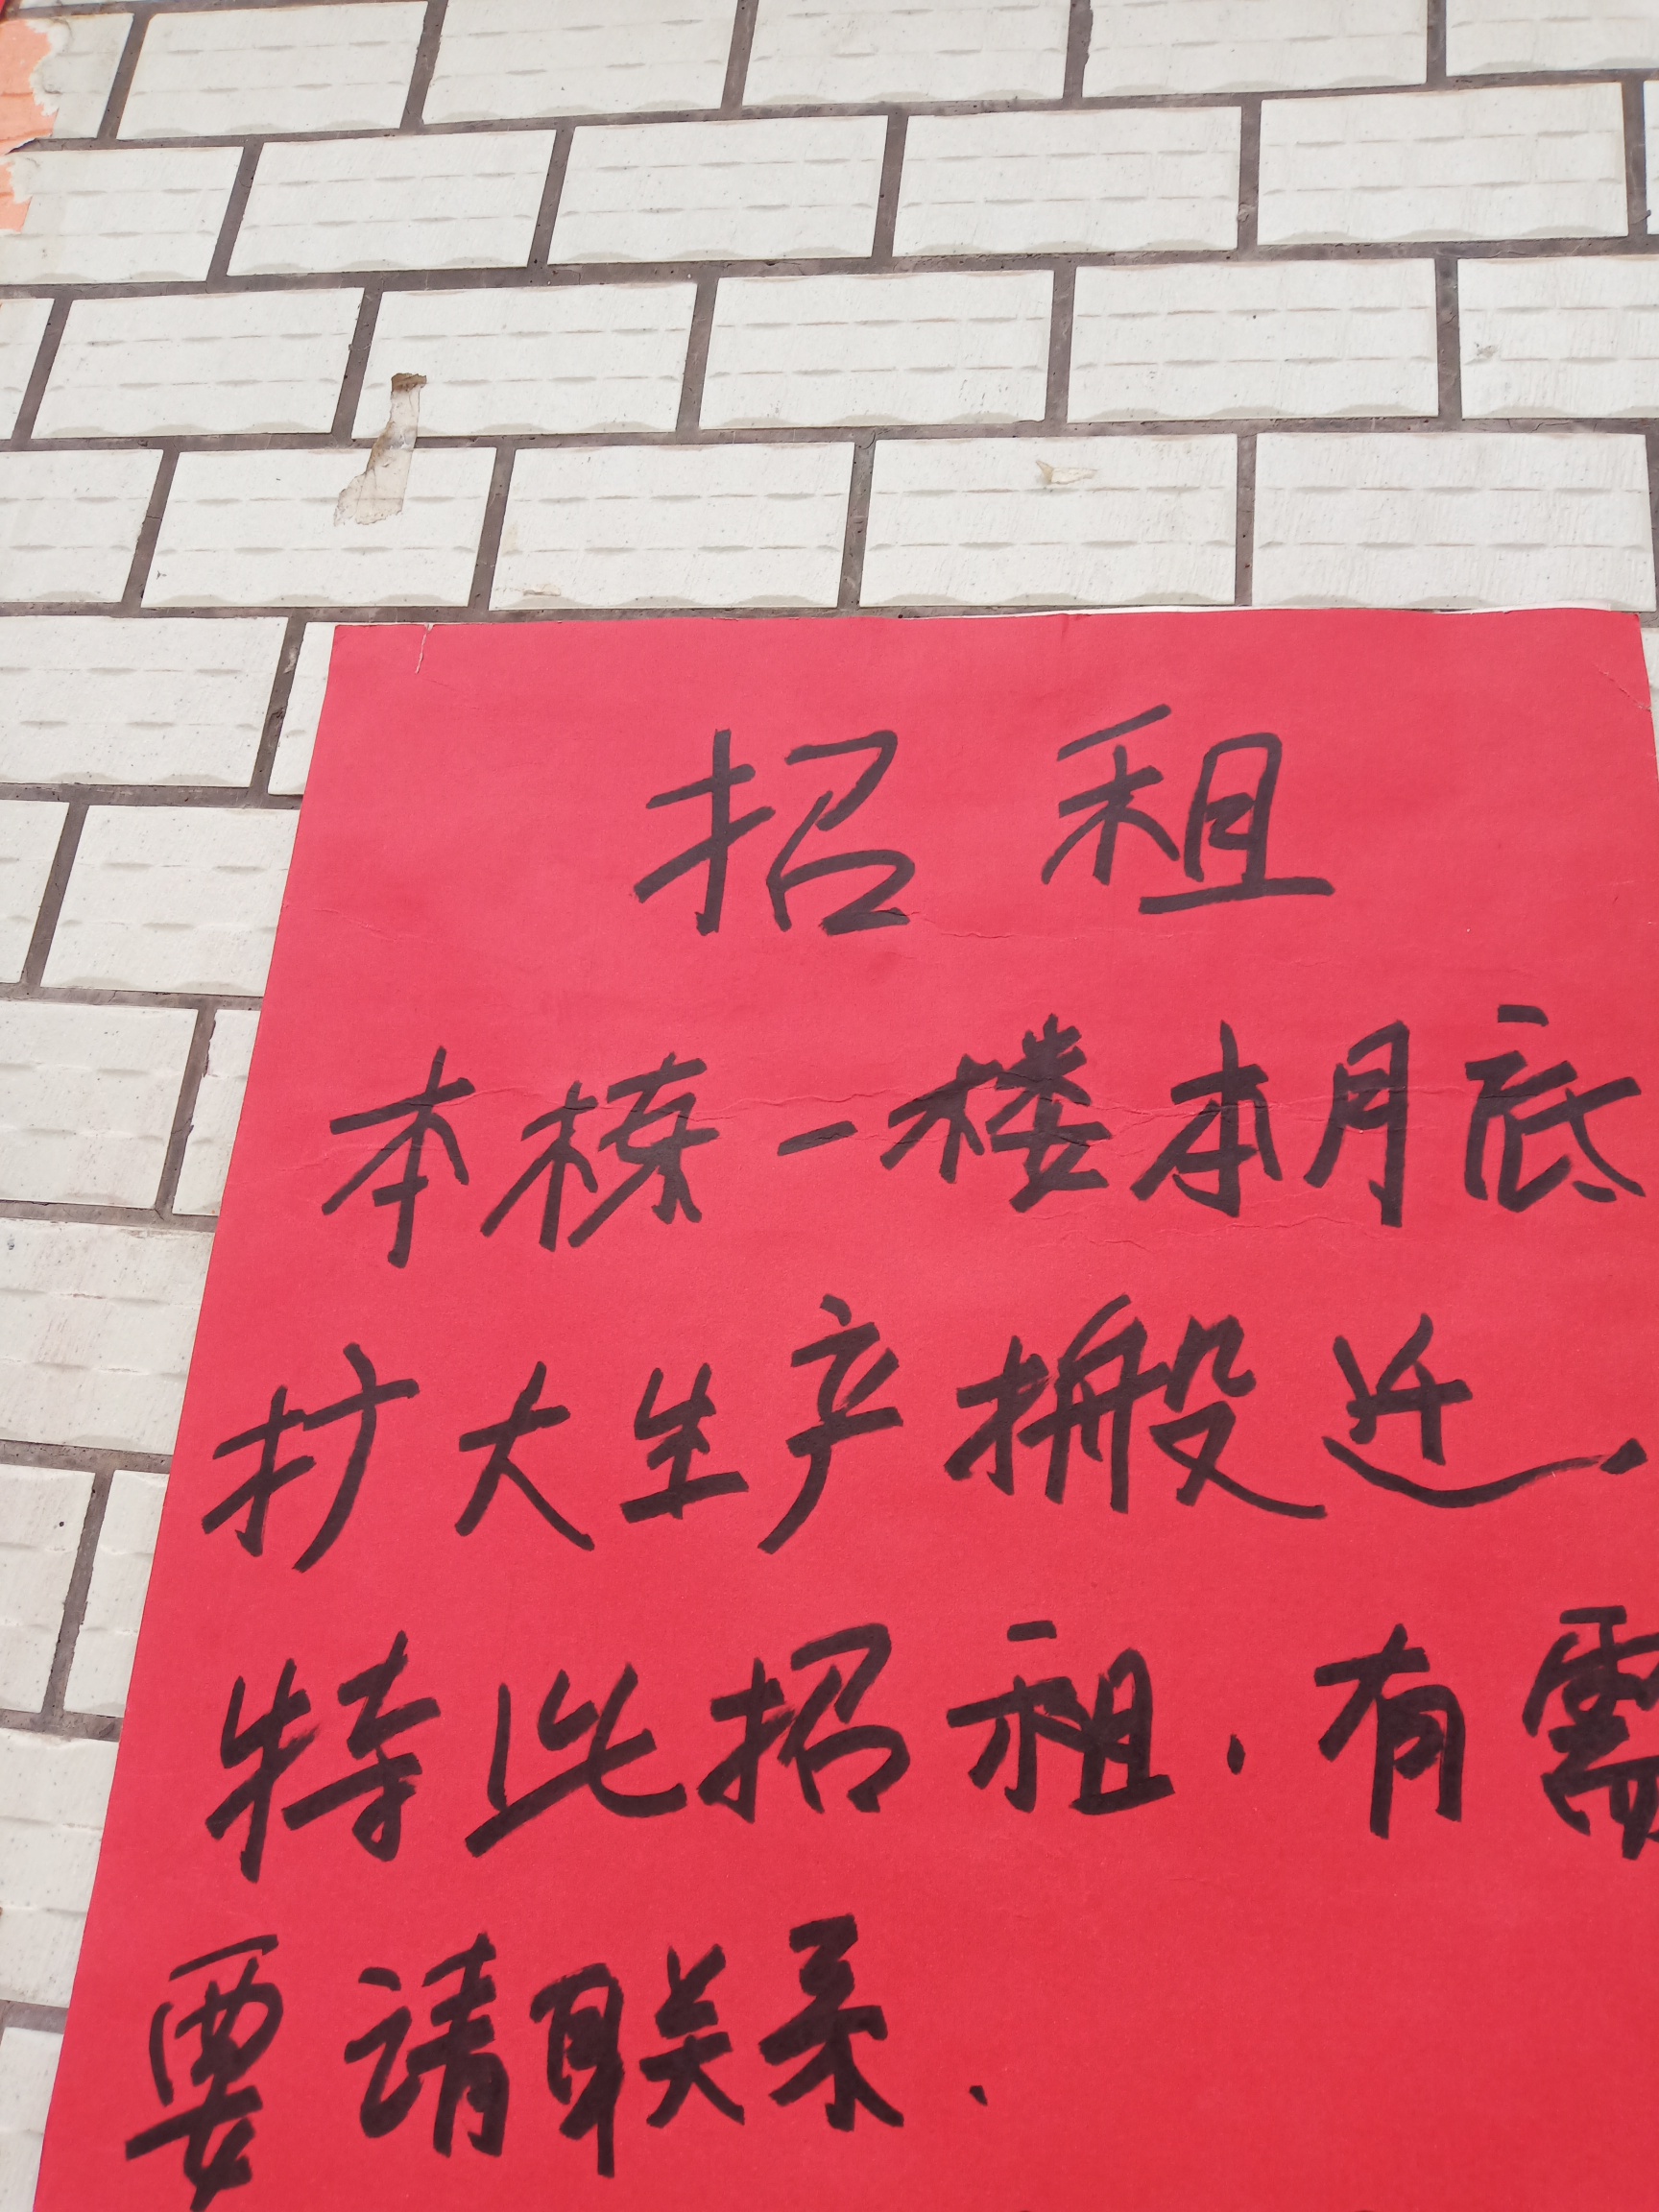 招租
本栋一楼本月底
扩大生产搬迁.
特此招租.有需
要请联系.